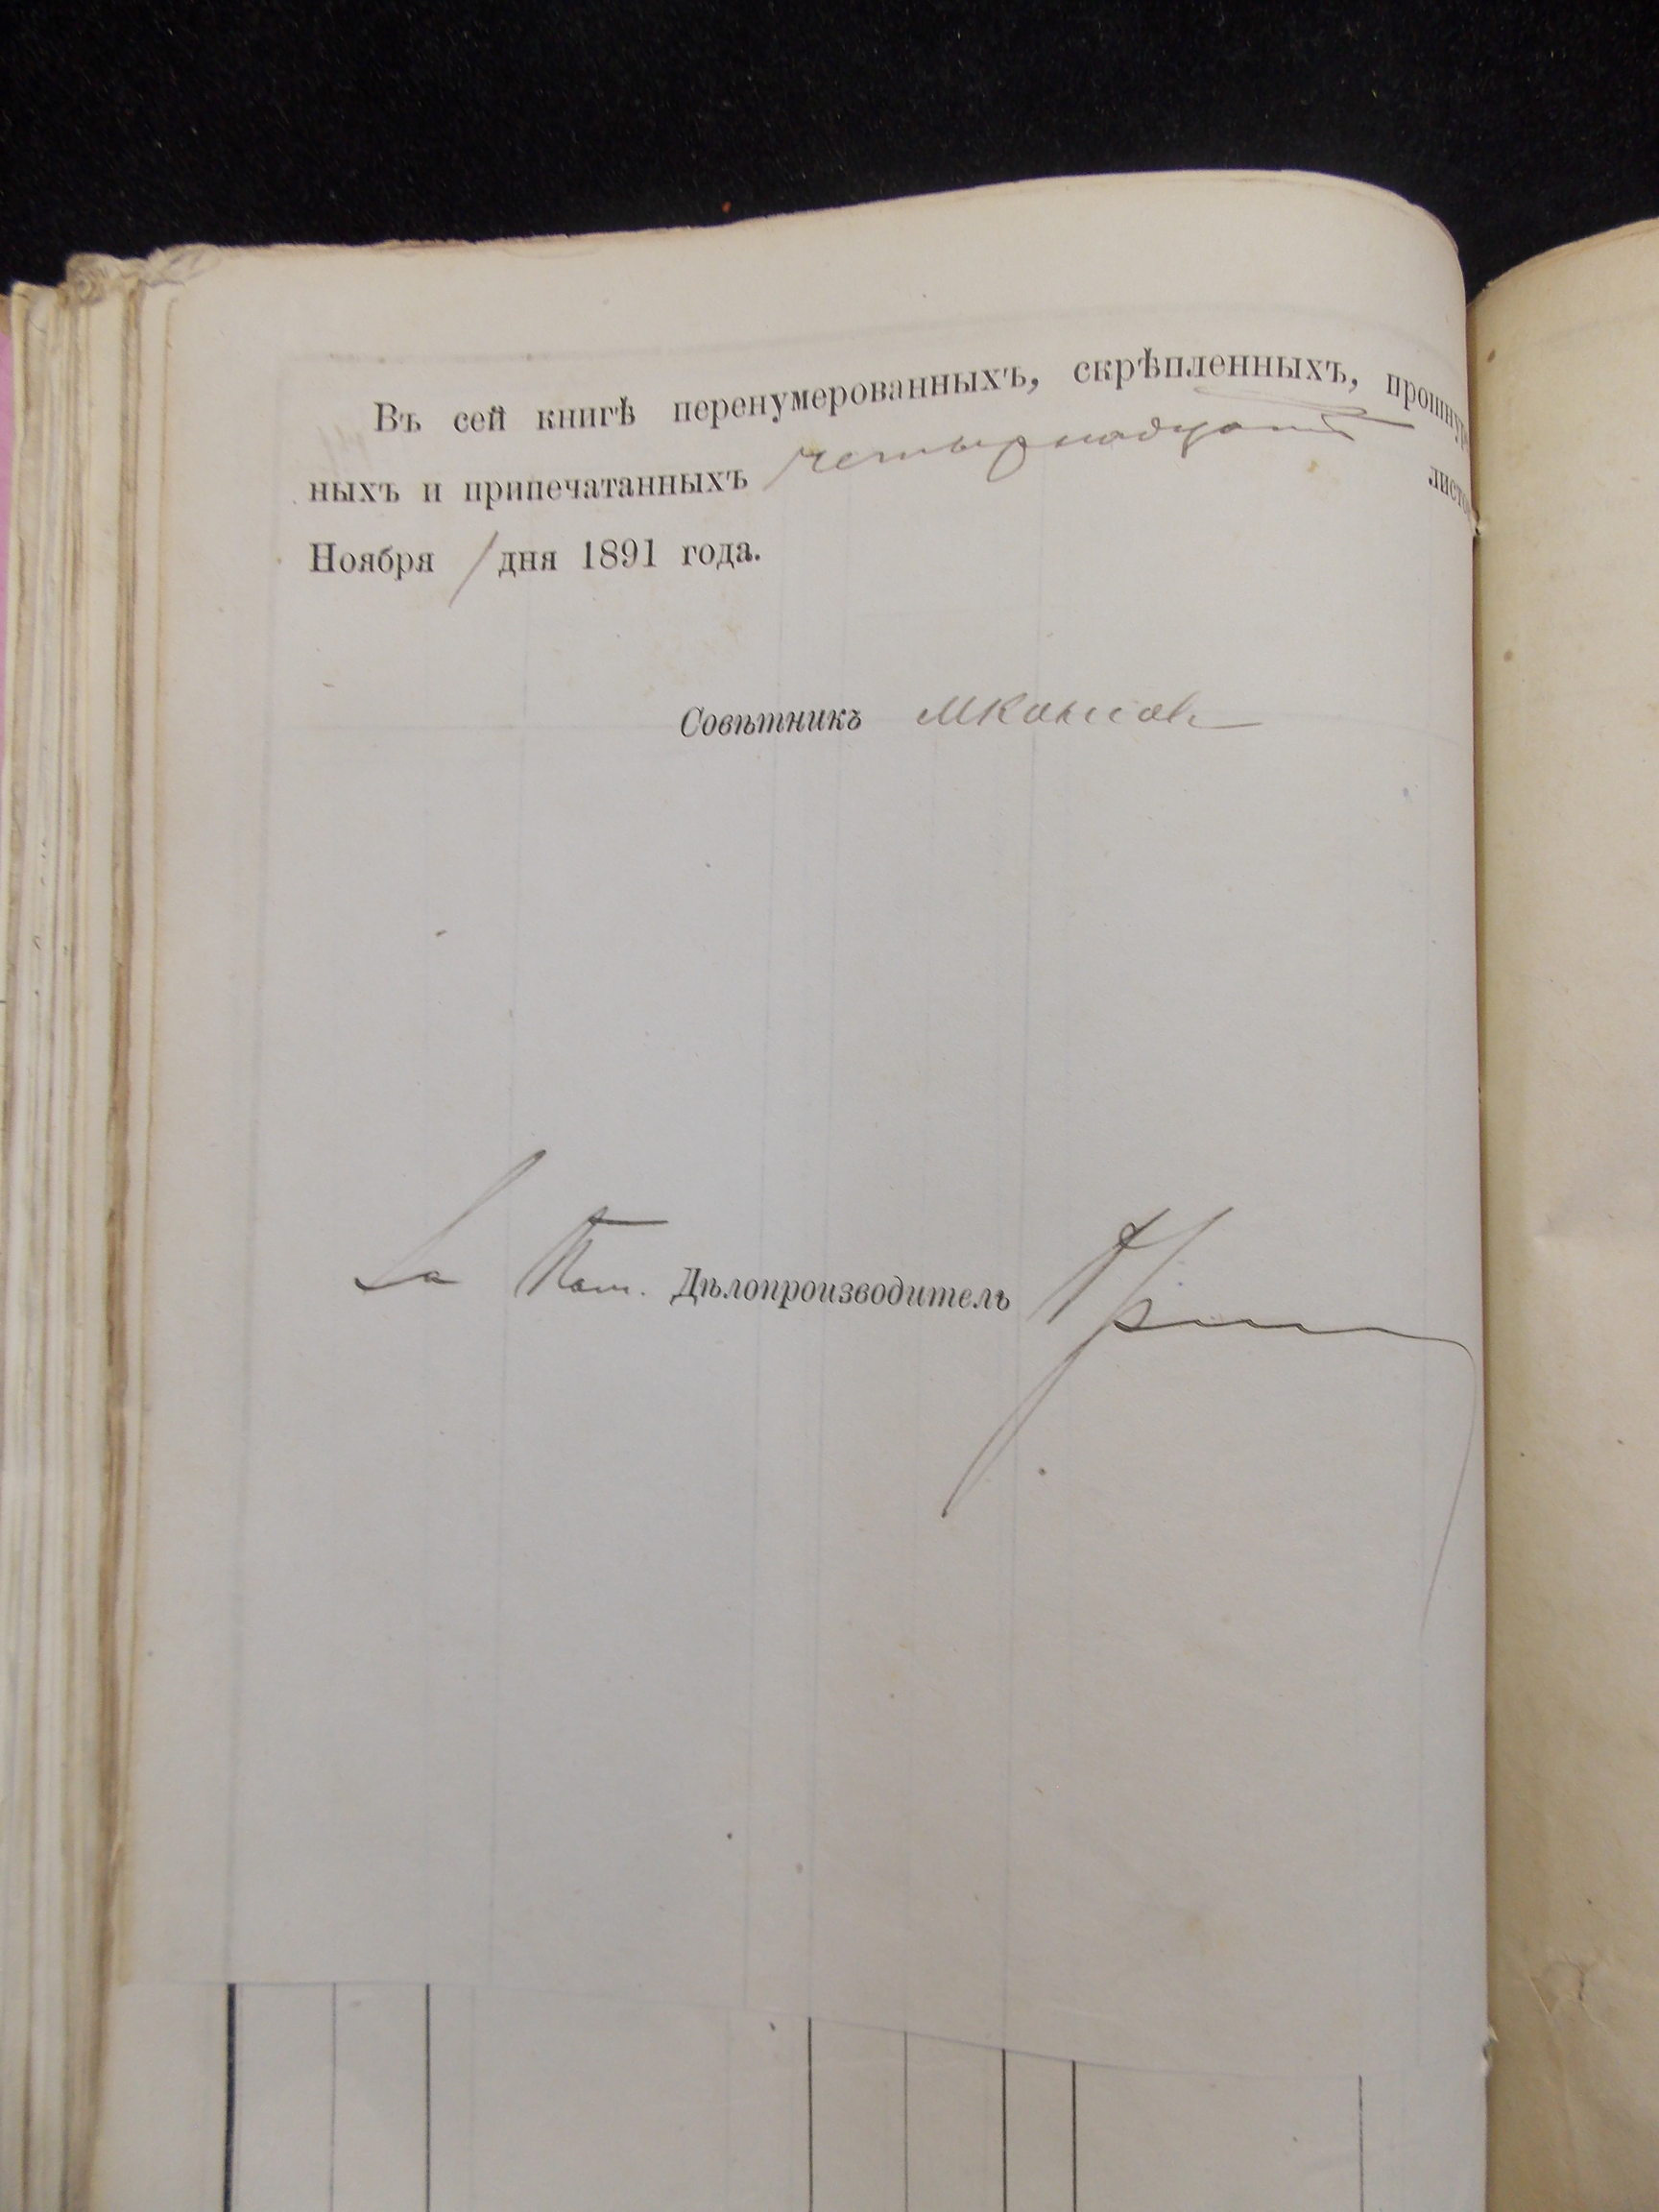 Въ сей книгѣ перенумерованныхъ, скрѣпленныхъ, прошнуро
ныхъ и припечатанныхъ четырнадцать листов
Ноября 1 дня 1891 года.
Совѣтникъ
За Пом. Дѣлопроизводитель